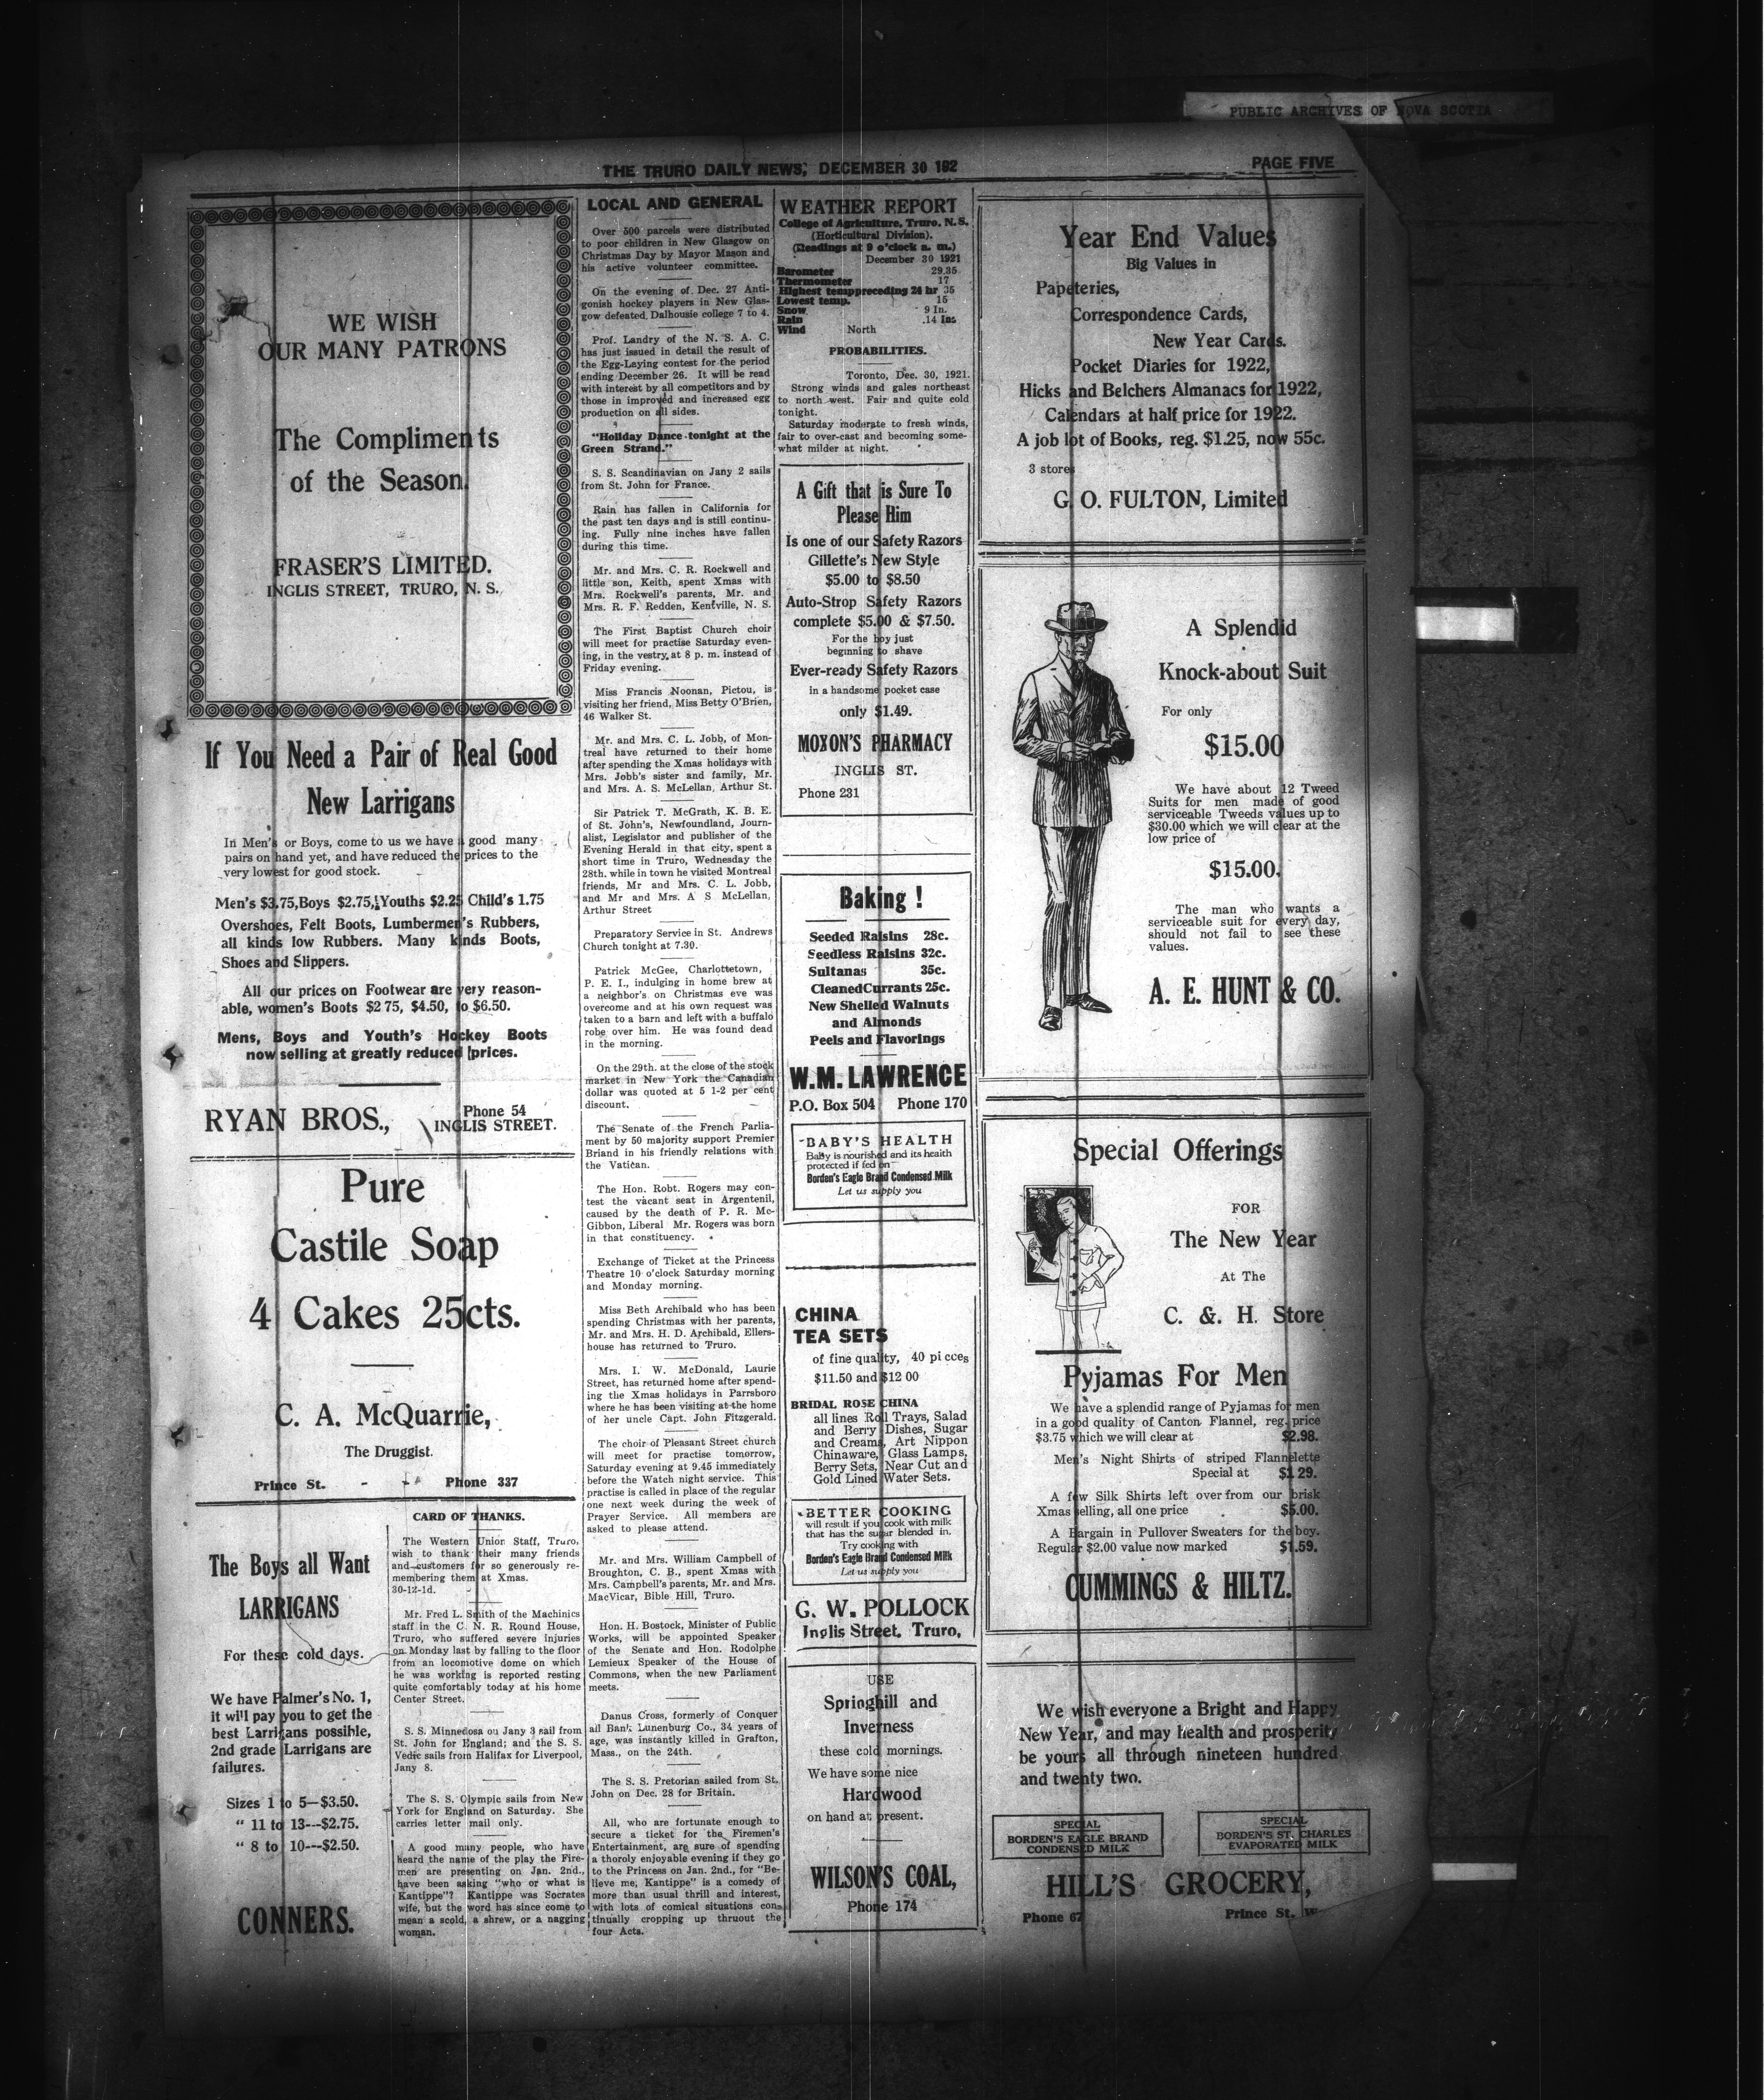 PUBLIC ARCHIVES OF NOVA SCOTIA
THE TRURO DAILY NEWS, DECEMBER 30 192
PAGE FIVE
WE WISH
OUR MANY PATRONS
The Compliments
of the Season
FRASER'S LIMITED.
INGLIS STREET, TRURO, N. S.
If You Need a Pair of Real Good
New Larrigans
In Men's or Boys, come to us we have a good many
pairs on hand yet, and have reduced the prices to the
very lowest for good stock.
Men's $3.75, Boys $2.75, Youths $2.25 Child's 1.75
Overshoes, Felt Boots, Lumbermen's Rubbers,
all kinds low Rubbers. Many kinds Boots,
Shoes and Slippers.
All our prices on Footwear are very reason-
able, women's Boots $2 75, $4.50, to $6.50.
Mens, Boys and Youth's Hockey Boots
now selling at greatly reduced prices.
RYAN BROS.,
Phone 54
INGLIS STREET.
Pure
Castile Soap
4 Cakes 25cts.
C. A. McQuarrie,
The Druggist.
Prince St. - - Phone 337
The Boys all Want
LARRIGANS
For these cold days.
We have Palmer's No. 1,
it will pay you to get the
best Larrigans possible,
2nd grade Larrigans are
failures.
Sizes 1 to 5—$3.50.
" 11 to 13---$2.75.
" 8 to 10---$2.50.
CONNERS.
CARD OF THANKS.
The Western Union Staff, Truro,
wish to thank their many friends
and customers for so generously re-
membering them at Xmas.
30-12-1d.
Mr. Fred L. Smith of the Machinics
staff in the C. N. R. Round House,
Truro, who suffered severe injuries
on Monday last by falling to the floor
from an locomotive dome on which
he was working is reported resting
quite comfortably today at his home
Center Street.
S. S. Minnedosa on Jany 3 sail from
St. John for England; and the S. S.
Vedic sails from Halifax for Liverpool,
Jany 8.
The S. S. Olympic sails from New
York for England on Saturday. She
carries letter mail only.
A good many people, who have
heard the name of the play the Fire-
men are presenting on Jan. 2nd.,
have been asking "who or what is
Kantippe"? Kantippe was Socrates
wife, but the word has since come to
mean a scold, a shrew, or a nagging
woman.
LOCAL AND GENERAL
Over 500 parcels were distributed
to poor children in New Glasgow on
Christmas Day by Mayor Mason and
his active volunteer committee.
On the evening of Dec. 27 Anti-
gonish hockey players in New Glas-
gow defeated Dalhousie college 7 to 4.
Prof. Landry of the N. S. A. C.
has just issued in detail the result of
the Egg-Laying contest for the period
ending December 26. It will be read
with interest by all competitors and by
those in improved and increased egg
production on all sides.
"Holiday Dance tonight at the
Green Strand."
S. S. Scandinavian on Jany 2 sails
from St. John for France.
Rain has fallen in California for
the past ten days and is still continu-
ing. Fully nine inches have fallen
during this time.
Mr. and Mrs. C. R. Rockwell and
little son, Keith, spent Xmas with
Mrs. Rockwell's parents, Mr. and
Mrs. R. F. Redden, Kentville, N. S.
The First Baptist Church choir
will meet for practise Saturday even-
ing, in the vestry at 8 p. m. instead of
Friday evening.
Miss Francis Noonan, Pictou, is
visiting her friend, Miss Betty O'Brien,
46 Walker St.
Mr. and Mrs. C. L. Jobb, of Mon-
treal have returned to their home
after spending the Xmas holidays with
Mrs. Jobb's sister and family, Mr.
and Mrs. A. S. McLellan, Arthur St.
Sir Patrick T. McGrath, K. B. E.
of St. John's, Newfoundland, Journ-
alist, Legislator and publisher of the
Evening Herald in that city, spent a
short time in Truro, Wednesday the
28th. while in town he visited Montreal
friends, Mr and Mrs. C. L. Jobb,
and Mr and Mrs. A S McLellan,
Arthur Street
Preparatory Service in St. Andrews
Church tonight at 7.30.
Patrick McGee, Charlottetown,
P. E. I., indulging in home brew at
a neighbor's on Christmas eve was
overcome and at his own request was
taken to a barn and left with a buffalo
robe over him. He was found dead
in the morning.
On the 29th. at the close of the stock
market in New York the Canadian
dollar was quoted at 5 1-2 per cent
discount.
The Senate of the French Parlia-
ment by 50 majority support Premier
Briand in his friendly relations with
the Vatican.
The Hon. Robt. Rogers may con-
test the vacant seat in Argentenil,
caused by the death of P. R. Mc-
Gibbon, Liberal Mr. Rogers was born
in that constituency.
Exchange of Ticket at the Princess
Theatre 10 o'clock Saturday morning
and Monday morning.
Miss Beth Archibald who has been
spending Christmas with her parents,
Mr. and Mrs. H. D. Archibald, Ellers-
house has returned to Truro.
Mrs. I. W. McDonald, Laurie
Street, has returned home after spend-
ing the Xmas holidays in Parrsboro
where he has been visiting at the home
of her uncle Capt. John Fitzgerald.
The choir of Pleasant Street church
will meet for practise tomorrow,
Saturday evening at 9.45 immediately
before the Watch night service. This
practise is called in place of the regular
one next week during the week of
Prayer Service. All members are
asked to please attend.
Mr. and Mrs. William Campbell of
Broughton, C. B., spent Xmas with
Mrs. Campbell's parents, Mr. and Mrs.
MacVicar, Bible Hill, Truro.
Hon. H. Bostock, Minister of Public
Works, will be appointed Speaker
of the Senate and Hon. Rodolphe
Lemieux Speaker of the House of
Commons, when the new Parliament
meets.
Danus Cross, formerly of Conquer
all Bank Lunenburg Co., 34 years of
age, was instantly killed in Grafton,
Mass., on the 24th.
The S. S. Pretorian sailed from St.
John on Dec. 28 for Britain.
All, who are fortunate enough to
secure a ticket for the Firemen's
Entertainment, are sure of spending
a thoroly enjoyable evening if they go
to the Princess on Jan. 2nd., for "Be-
lieve me, Kantippe" is a comedy of
more than usual thrill and interest,
with lots of comical situations con-
tinually cropping up thruout the
four Acts.
WEATHER REPORT
College of Agriculture, Truro, N. S.
(Horticultural Division).
(Readings at 9 o'clock a. m.)
December 30 1921
Barometer 29.35
Thermometer 17
Highest temp preceding 24 hr 35
Lowest temp. 15
Snow 9 In.
Rain .14 Ins
Wind North
PROBABILITIES.
Toronto, Dec. 30, 1921.
Strong winds and gales northeast
to north west. Fair and quite cold
tonight.
Saturday moderate to fresh winds,
fair to over-cast and becoming some-
what milder at night.
A Gift that is Sure To
Please Him
Is one of our Safety Razors
Gillette's New Style
$5.00 to $8.50
Auto-Strop Safety Razors
complete $5.00 & $7.50.
For the boy just
beginning to shave
Ever-ready Safety Razors
in a handsome pocket case
only $1.49.
MOXON'S PHARMACY
INGLIS ST.
Phone 231
Baking !
Seeded Raisins 28c.
Seedless Raisins 32c.
Sultanas 35c.
Cleaned Currants 25c.
New Shelled Walnuts
and Almonds
Peels and Flavorings
W.M. LAWRENCE
P.O. Box 504 Phone 170
BABY'S HEALTH
Baby is nourished and its health
protected if fed on
Borden's Eagle Brand Condensed Milk
Let us supply you
CHINA
TEA SETS
of fine quality, 40 pi cces
$11.50 and $12 00
BRIDAL ROSE CHINA
all lines Roll Trays, Salad
and Berry Dishes, Sugar
and Creams, Art Nippon
Chinaware, Glass Lamps,
Berry Sets, Near Cut and
Gold Lined Water Sets.
BETTER COOKING
will result if you cook with milk
that has the sugar blended in.
Try cooking with
Borden's Eagle Brand Condensed Milk
Let us supply you
G. W. POLLOCK
Inglis Street, Truro,
USE
Springhill and
Inverness
these cold mornings.
We have some nice
Hardwood
on hand at present.
WILSON'S COAL,
Phone 174
Year End Values
Big Values in
Papeteries,
Correspondence Cards,
New Year Cards.
Pocket Diaries for 1922,
Hicks and Belchers Almanacs for 1922,
Calendars at half price for 1922.
A job lot of Books, reg. $1.25, now 55c.
3 stores
G. O. FULTON, Limited
A Splendid
Knock-about Suit
For only
$15.00
We have about 12 Tweed
Suits for men made of good
serviceable Tweeds values up to
$30.00 which we will clear at the
low price of
$15.00.
The man who wants a
serviceable suit for every day,
should not fail to see these
values.
A. E. HUNT & CO.
Special Offerings
FOR
The New Year
At The
C. & H. Store
Pyjamas For Men
We have a splendid range of Pyjamas for men
in a good quality of Canton Flannel, reg. price
$3.75 which we will clear at $2.98.
Men's Night Shirts of striped Flannelette
Special at $1 29.
A few Silk Shirts left over from our brisk
Xmas selling, all one price $5.00.
A Bargain in Pullover Sweaters for the boy.
Regular $2.00 value now marked $1.59.
CUMMINGS & HILTZ.
We wish everyone a Bright and Happy
New Year, and may health and prosperity
be yours all through nineteen hundred
and twenty two.
SPECIAL
BORDEN'S EAGLE BRAND
CONDENSED MILK
SPECIAL
BORDEN'S ST. CHARLES
EVAPORATED MILK
HILL'S GROCERY,
Phone 67
Prince St. W